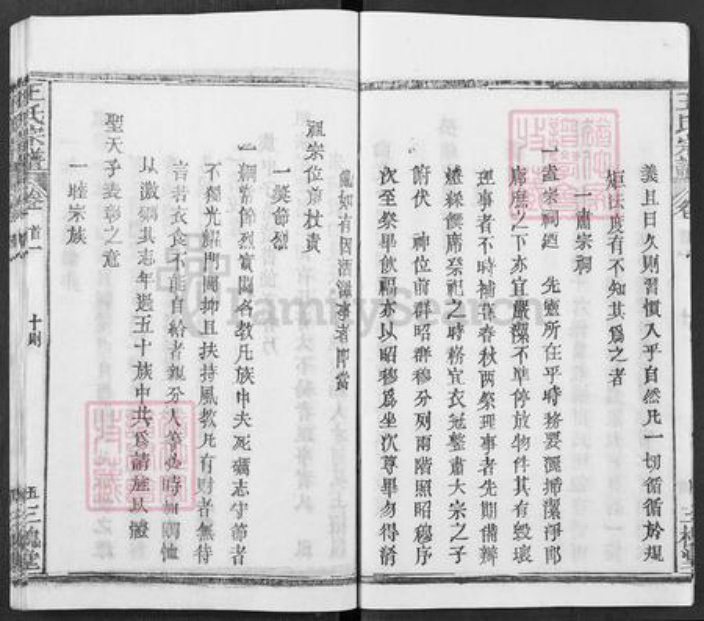 義且日久則習慣入乎自然凡一切循循於規
矩法度有不知其爲之者
一肅宗祠
一蓋宗祠廼 先靈所在乎時務要灑掃潔淨郎
廊廡之下亦宜嚴潔不準停放物件其有毀壞
理事者不時補葺春秋两祭理事者先期備辦
燈綵饌席祭祀之時務宜衣冠整肅大宗之子
俯伏 神位前群昭群穆分列兩階照昭穆序
次至祭畢飲福亦以昭穆爲坐次尊畢勿得淆
亂如有因酒滋事者明當
祖宗位前杖責
一獎節烈
一綱常節烈實關名教凡族中夫死孀志守節者
不獨光耀門閭抑且扶持風教凡有財者無待
言若衣食不能自給者親分人等必時加賙恤
以激礪其志年過五十族中共爲請旌以體
聖天子表彰之意
一睦宗族
王氏宗譜
卷一 首一
十則
五
三槐堂
王氏宗譜
卷
三槐堂
FamilySearch